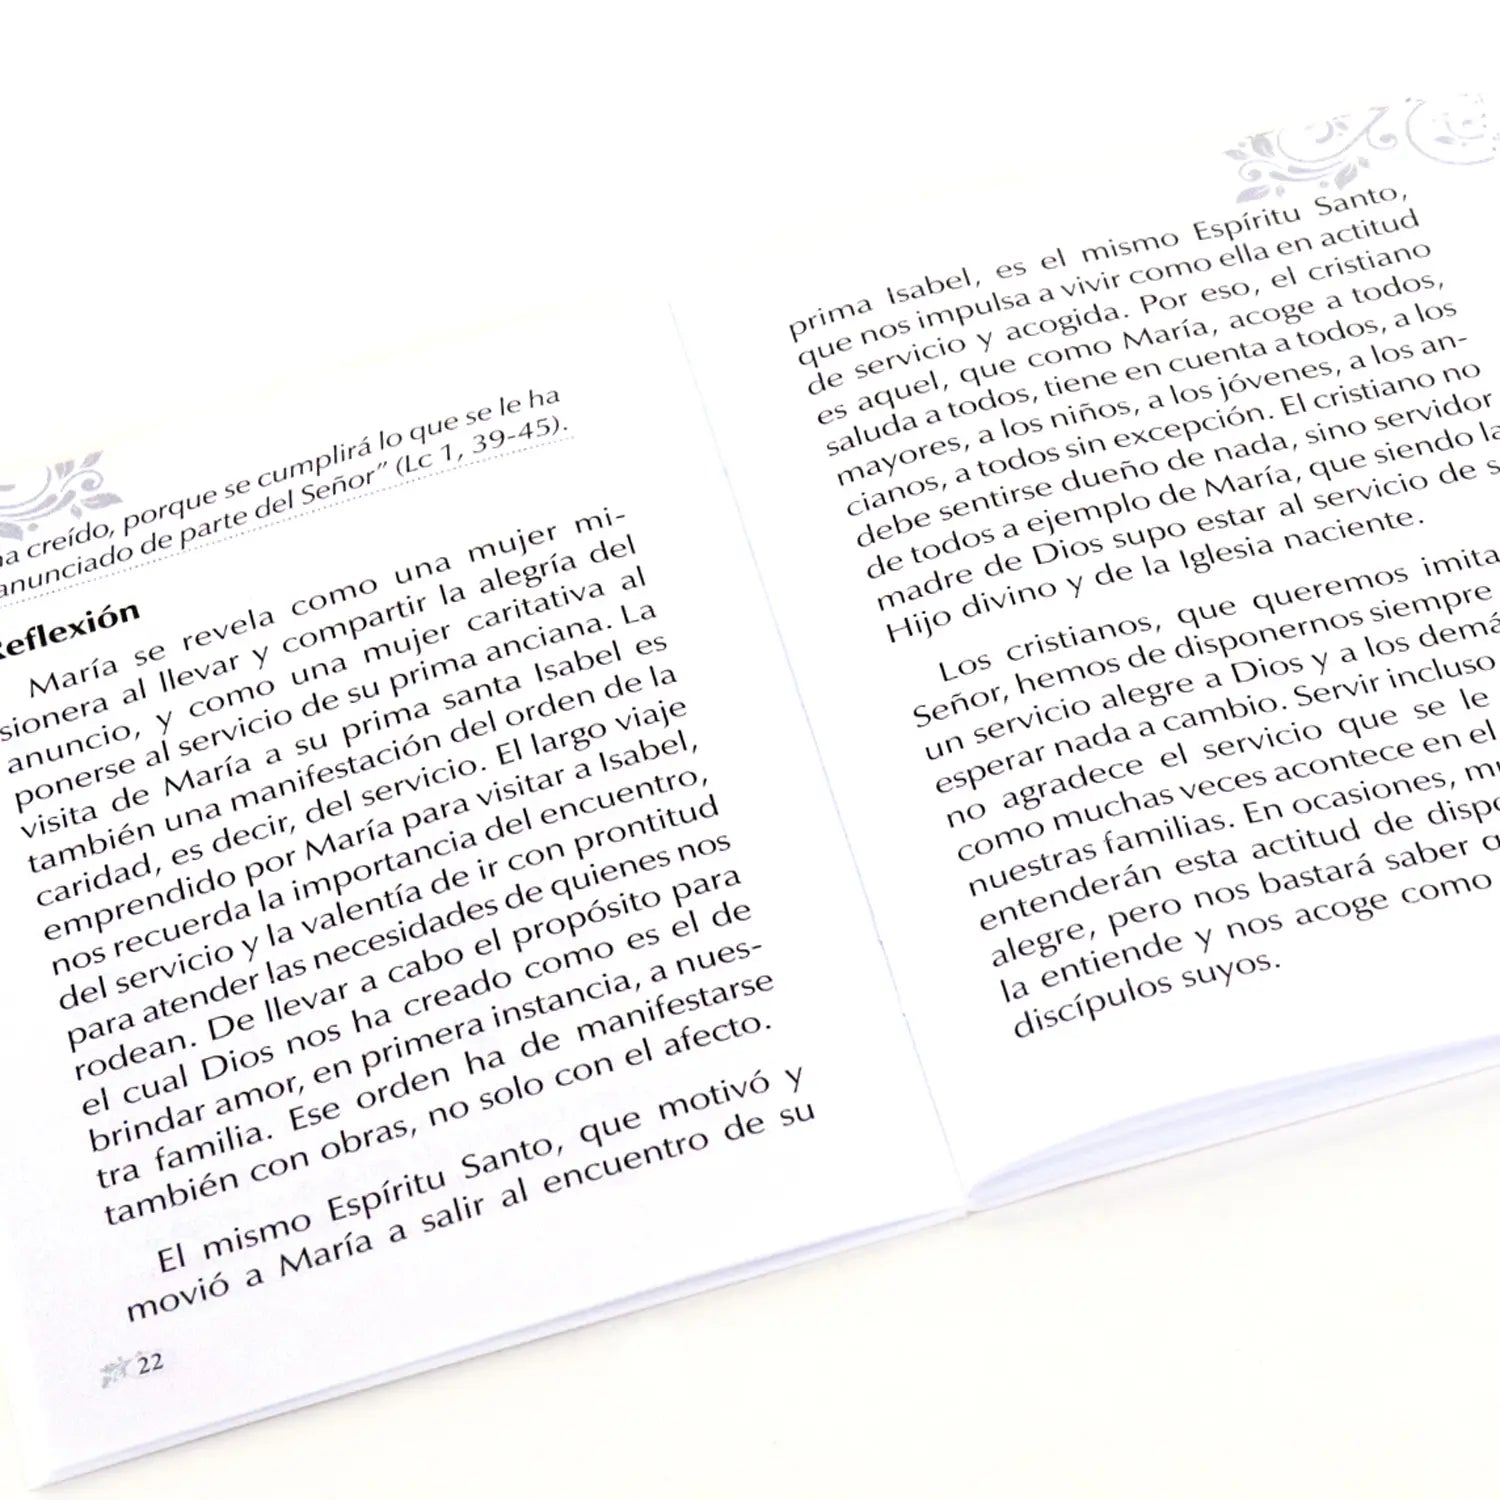 ha creído, porque se cumplirá lo que se le ha
anunciado de parte del Señor” (Lc 1, 39-45).
Reflexión
María se revela como una mujer mi-
sionera al llevar y compartir la alegría del
anuncio, y como una mujer caritativa al
ponerse al servicio de su prima anciana. La
visita de María a su prima santa Isabel es
también una manifestación del orden de la
caridad, es decir, del servicio. El largo viaje
emprendido por María para visitar a Isabel,
nos recuerda la importancia del encuentro,
del servicio y la valentía de ir con prontitud
para atender las necesidades de quienes nos
rodean. De llevar a cabo el propósito para
el cual Dios nos ha creado como es el de
brindar amor, en primera instancia, a nues-
tra familia. Ese orden ha de manifestarse
también con obras, no solo con el afecto.
El mismo Espíritu Santo, que motivó y
movió a María a salir al encuentro de su
22
prima Isabel, es el mismo Espíritu Santo,
que nos impulsa a vivir como ella en actitud
de servicio y acogida. Por eso, el cristiano
es aquel, que como María, acoge a todos,
saluda a todos, tiene en cuenta a todos, a los
mayores, a los niños, a los jóvenes, a los an-
cianos, a todos sin excepción. El cristiano no
debe sentirse dueño de nada, sino servidor
de todos a ejemplo de María, que siendo la
madre de Dios supo estar al servicio de
Hijo divino y de la Iglesia naciente.
Los cristianos, que queremos
Señor, hemos de disponernos siempre
un servicio alegre a Dios y a los
esperar nada a cambio. Servir incluso
no agradece el servicio que se le
como muchas veces acontece en el
nuestras familias. En ocasiones,
entenderán esta actitud de
alegre, pero nos bastará saber
la entiende y nos acoge como
discípulos suyos.